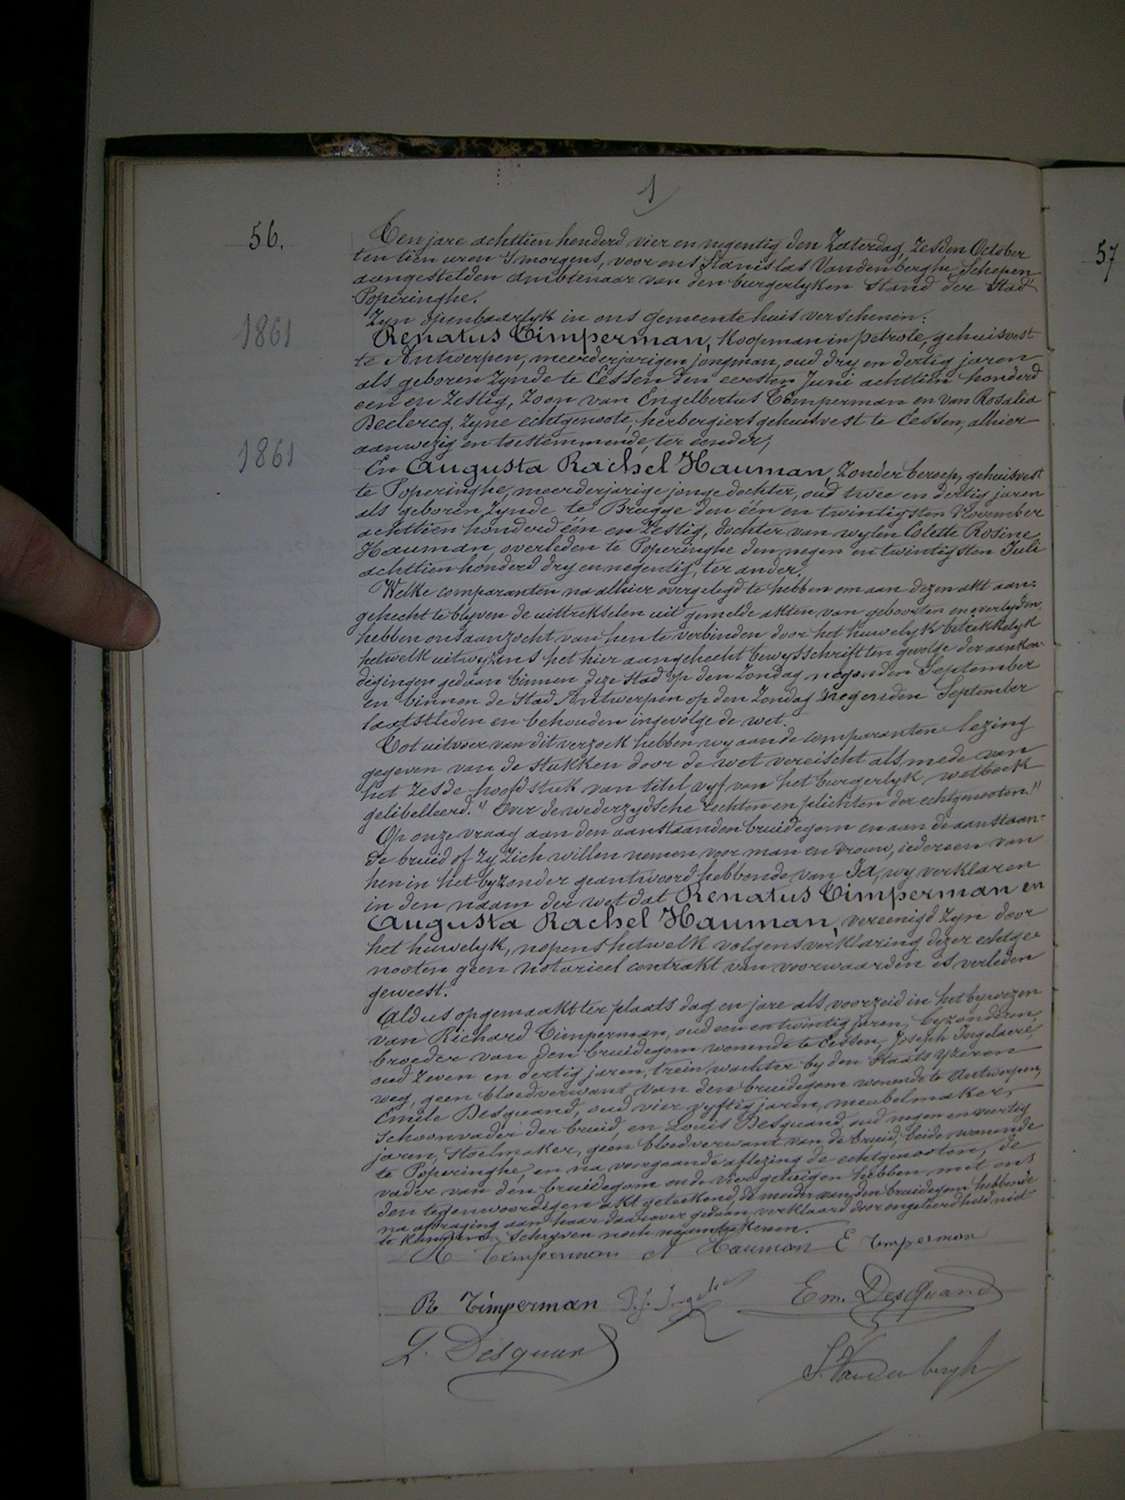 1
56.
57
Ten jare achttien honderd vier en negentig den Zaterdag, zesden October
ten tien uren 's morgens, voor ons Stanislas Vandenberghe Schepen
aangestelden ambtenaar van den burgerlyken Stand der Stad
Poperinghe.
Zyn openbaarlyk in ons gemeentehuis verschenen:
1861
Renatus Timperman, koopman in petrole, gehuisvest
te Antwerpen, meerderjarigen jongman, oud dry en dertig jaren
als geboren zynde te Lessen den eersten Junii achttien honderd
een en zestig, zoon van Engelbertus Timperman en van Rosalia
Declercq, zyne echtgenoote, herbergiers gehuisvest te Lessen, alhier
aanwezig en toestemmende, ter eender,
1861
En Augusta Rachel Hauman, zonder beroep, gehuisvest
te Poperinghe, meerderjarige jonge dochter, oud twee en dertig jaren
als geboren zynde te Brugge den één en twintigsten November
achttien honderd één en zestig, dochter van wylen Colette Rosine
Hauman, overleden te Poperinghe den negen en twintigsten Juli
achttien honderd dry en negentig, ter ander,
Welke comparanten na alhier overgelegd te hebben om aan dezen akt aan-
gehecht te blyven de uittrekselen uit gemelde akten van geboorten en overlyden,
hebben ons aanzocht van hen te verbinden door het huwelyk betrekkelyk
hetwelk uitwyzens het hier aangehecht bewysschrift ten gevolge der aankon-
digingen gedaan binnen deze Stad op den Zondag negensden September
en binnen de Stad Antwerpen op den Zondag negensden September
laatstleden en behouden ingevolge de wet.
Tot uitvoer van dit verzoek hebben wy aan de comparanten lezing
gegeven van de stukken door de wet vereischt als mede van
het zesde hoofdstuk van titel vyf van het burgerlyk wetboek
gelibelleerd: "Over de wederzydsche rechten en plichten der echtgenooten."
Op onze vraag aan den aanstaanden bruidegom en aan de aanstaan-
de bruid of zy zich willen nemen voor man en vrouw, iedereen van
hen in het byzonder geantwoord hebbende van Ja, wy verklaren
in den naam der wet dat Renatus Timperman en
Augusta Rachel Hauman, vereenigd zyn door
het huwelyk, nopens hetwelk volgens verklaring dezer echtge-
nooten geen notarieel contrakt van voorwaarden is verleden
geweest.
Aldus opgemaakt ter plaats dag en jare als voorzeid in het bywezen
van Richard Timperman, oud een en twintig jaren, byzonderen,
broeder van den bruidegom wonende te Lessen, Joseph Ingelaere,
oud zeven en dertig jaren, trein wachter by den Staats Yzeren
weg, geen bloedverwant van den bruidegom wonende te Antwerpen,
Emile Desquand, oud vier vyftig jaren, meubelmaker,
schoonvader der bruid en Louis Desquand, oud negen en veertig
jaren, stoelmaker, geen bloedverwant van de bruid, beide wonende
te Poperinghe, en na voorgaande aflezing de echtgenooten, de
vader van den bruidegom en de vier getuigen hebben met ons
den tegenwoordigen akt geteekend, de moeder van den bruidegom hebbende
na afvraging aan haar daarover gedaan, verklaard door ongeleerdheid niet
te kunnen schryven noch naamteekenen.
R Timperman A Hauman E Timperman
R Timperman Em. Desquand
L. Desquand
S. Vandenbergh